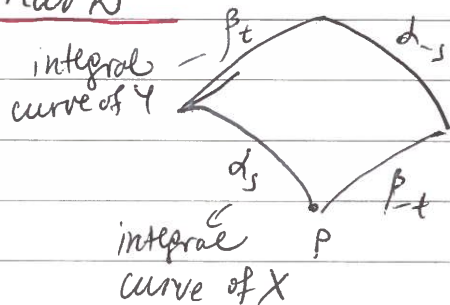 β_t
α_{-s}
integral
curve of Y
α_s
β_{-t}
integral
P
curve of X